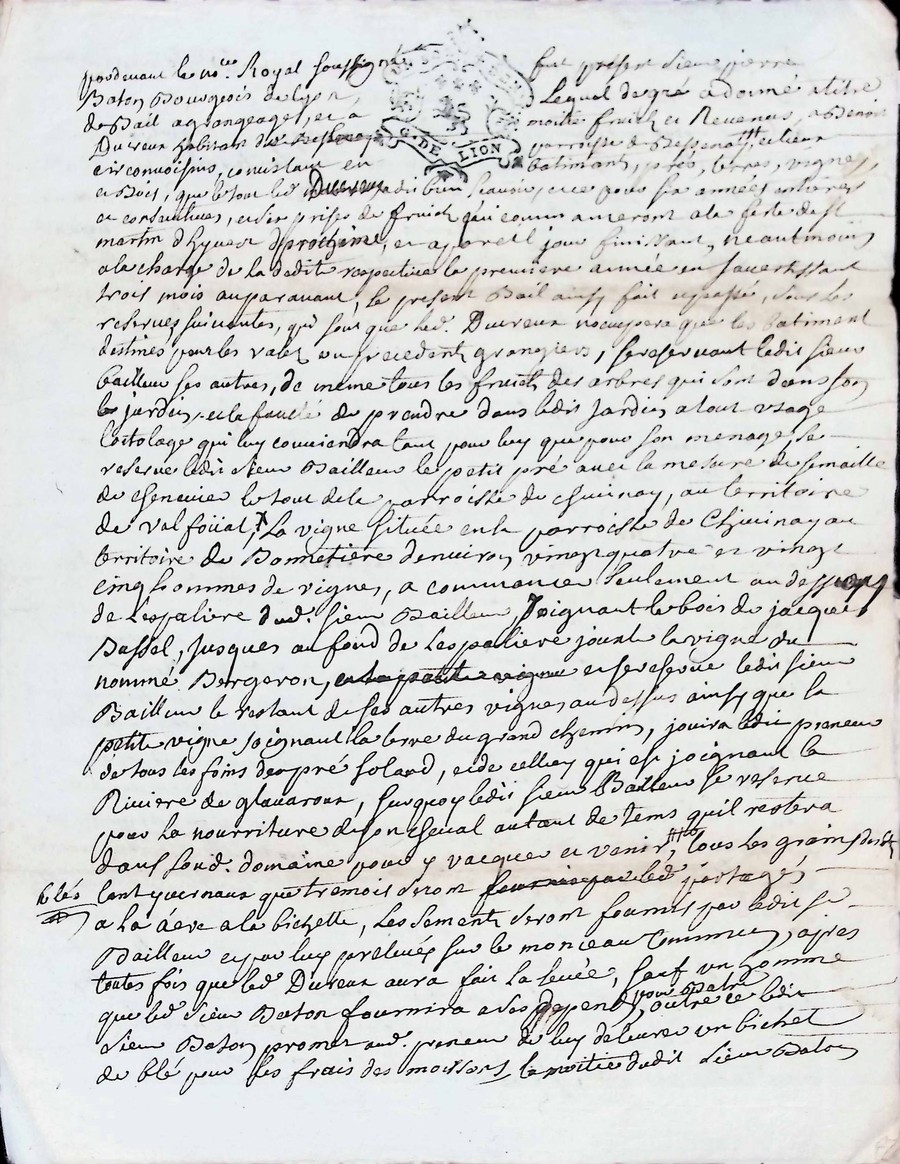 pardevant le no.re Royal soussigné fut présent Sieur pierre
Baton Bourgeois de Lyon, Lequel de gré a donné a titre
de Bail a grangeage, et a moitié fruich et Revenus, a Benoit
Ducreux habitant de parroisse de Bessenatt et lieux
circonvoisins, consistant en batiments, prés, terres, vignes,
et Bois, que le tout led Ducreux a dit bien scavoir, et ce pour six années entières
et consecutives, et six prises de fruich qui commanceront a la feste de st
martin d'hyver prochaine, et a pareil jour finissant, neautmoins
a la charge de la dedite respective la premiere année en s'avertissant
trois mois auparavant, le present Bail ainsy fait et passé, sous les
reserves suivantes, qui sont que led. Ducreux n'occupera que les batiment
destinés pour les valets ou precedent grangiers, se reservant ledit sieur
bailleur ses autres, de meme tous les fruich des arbres qui sont dans son
jardin, et la faculté de prendre dans ledit Jardin a tout usage
l'ortolage qui luy conviendra tant pour luy que pour son menage, se
reserve ledit sieur Bailleur le petit pré avec la mesure de semaille
de chenevie le tout de la parroisse de Chuinay, au territoire
de Valfoüiat, La vigne située en la parroisse de Chuinay au
territoire de Bonnetiere d'environ vingt quatre et vingt
cinq hommes de vignes, a commancer seulement au dessous
de L'espaliere dud. sieur Bailleur, Joignant le bois de jacques
Bassel, jusques au fond de L'espaliere joint la vigne du
nommé Bergeron, et la petite vigne et se reserve ledit sieur
Bailleur le restant de ses autres vignes au dessus ainsy que la
petite vigne joignant la terre du grand chemin, jouira ledit preneur
de tous les foins du pré Solard, et de celluy qui est joignant la
Riviere de glavaroux, sur quoy ledit sieur Bailleur se reserve
pour la nourriture de son cheval autant de tems qu'il restera
dans sond. domaine pour y vacquer et venir, tous les grains
blés
tant yvernaux que tremois seront partagés
a la aere a la bichette, Les sement seront fournis par ledit sr
Bailleur et par luy prelevés sur le monceau Commun, apres
toutes fois que led Ducreux aura fait la levée, sauf un homme
que led sieur Baton fournira a ses depend pour Batre, outre ce ledit
Sieur Baton promet aud. preneur de luy delivrer un bichet
de blé pour les frais des moissons, la moitié dudit Sieur Baton
G. DE LION